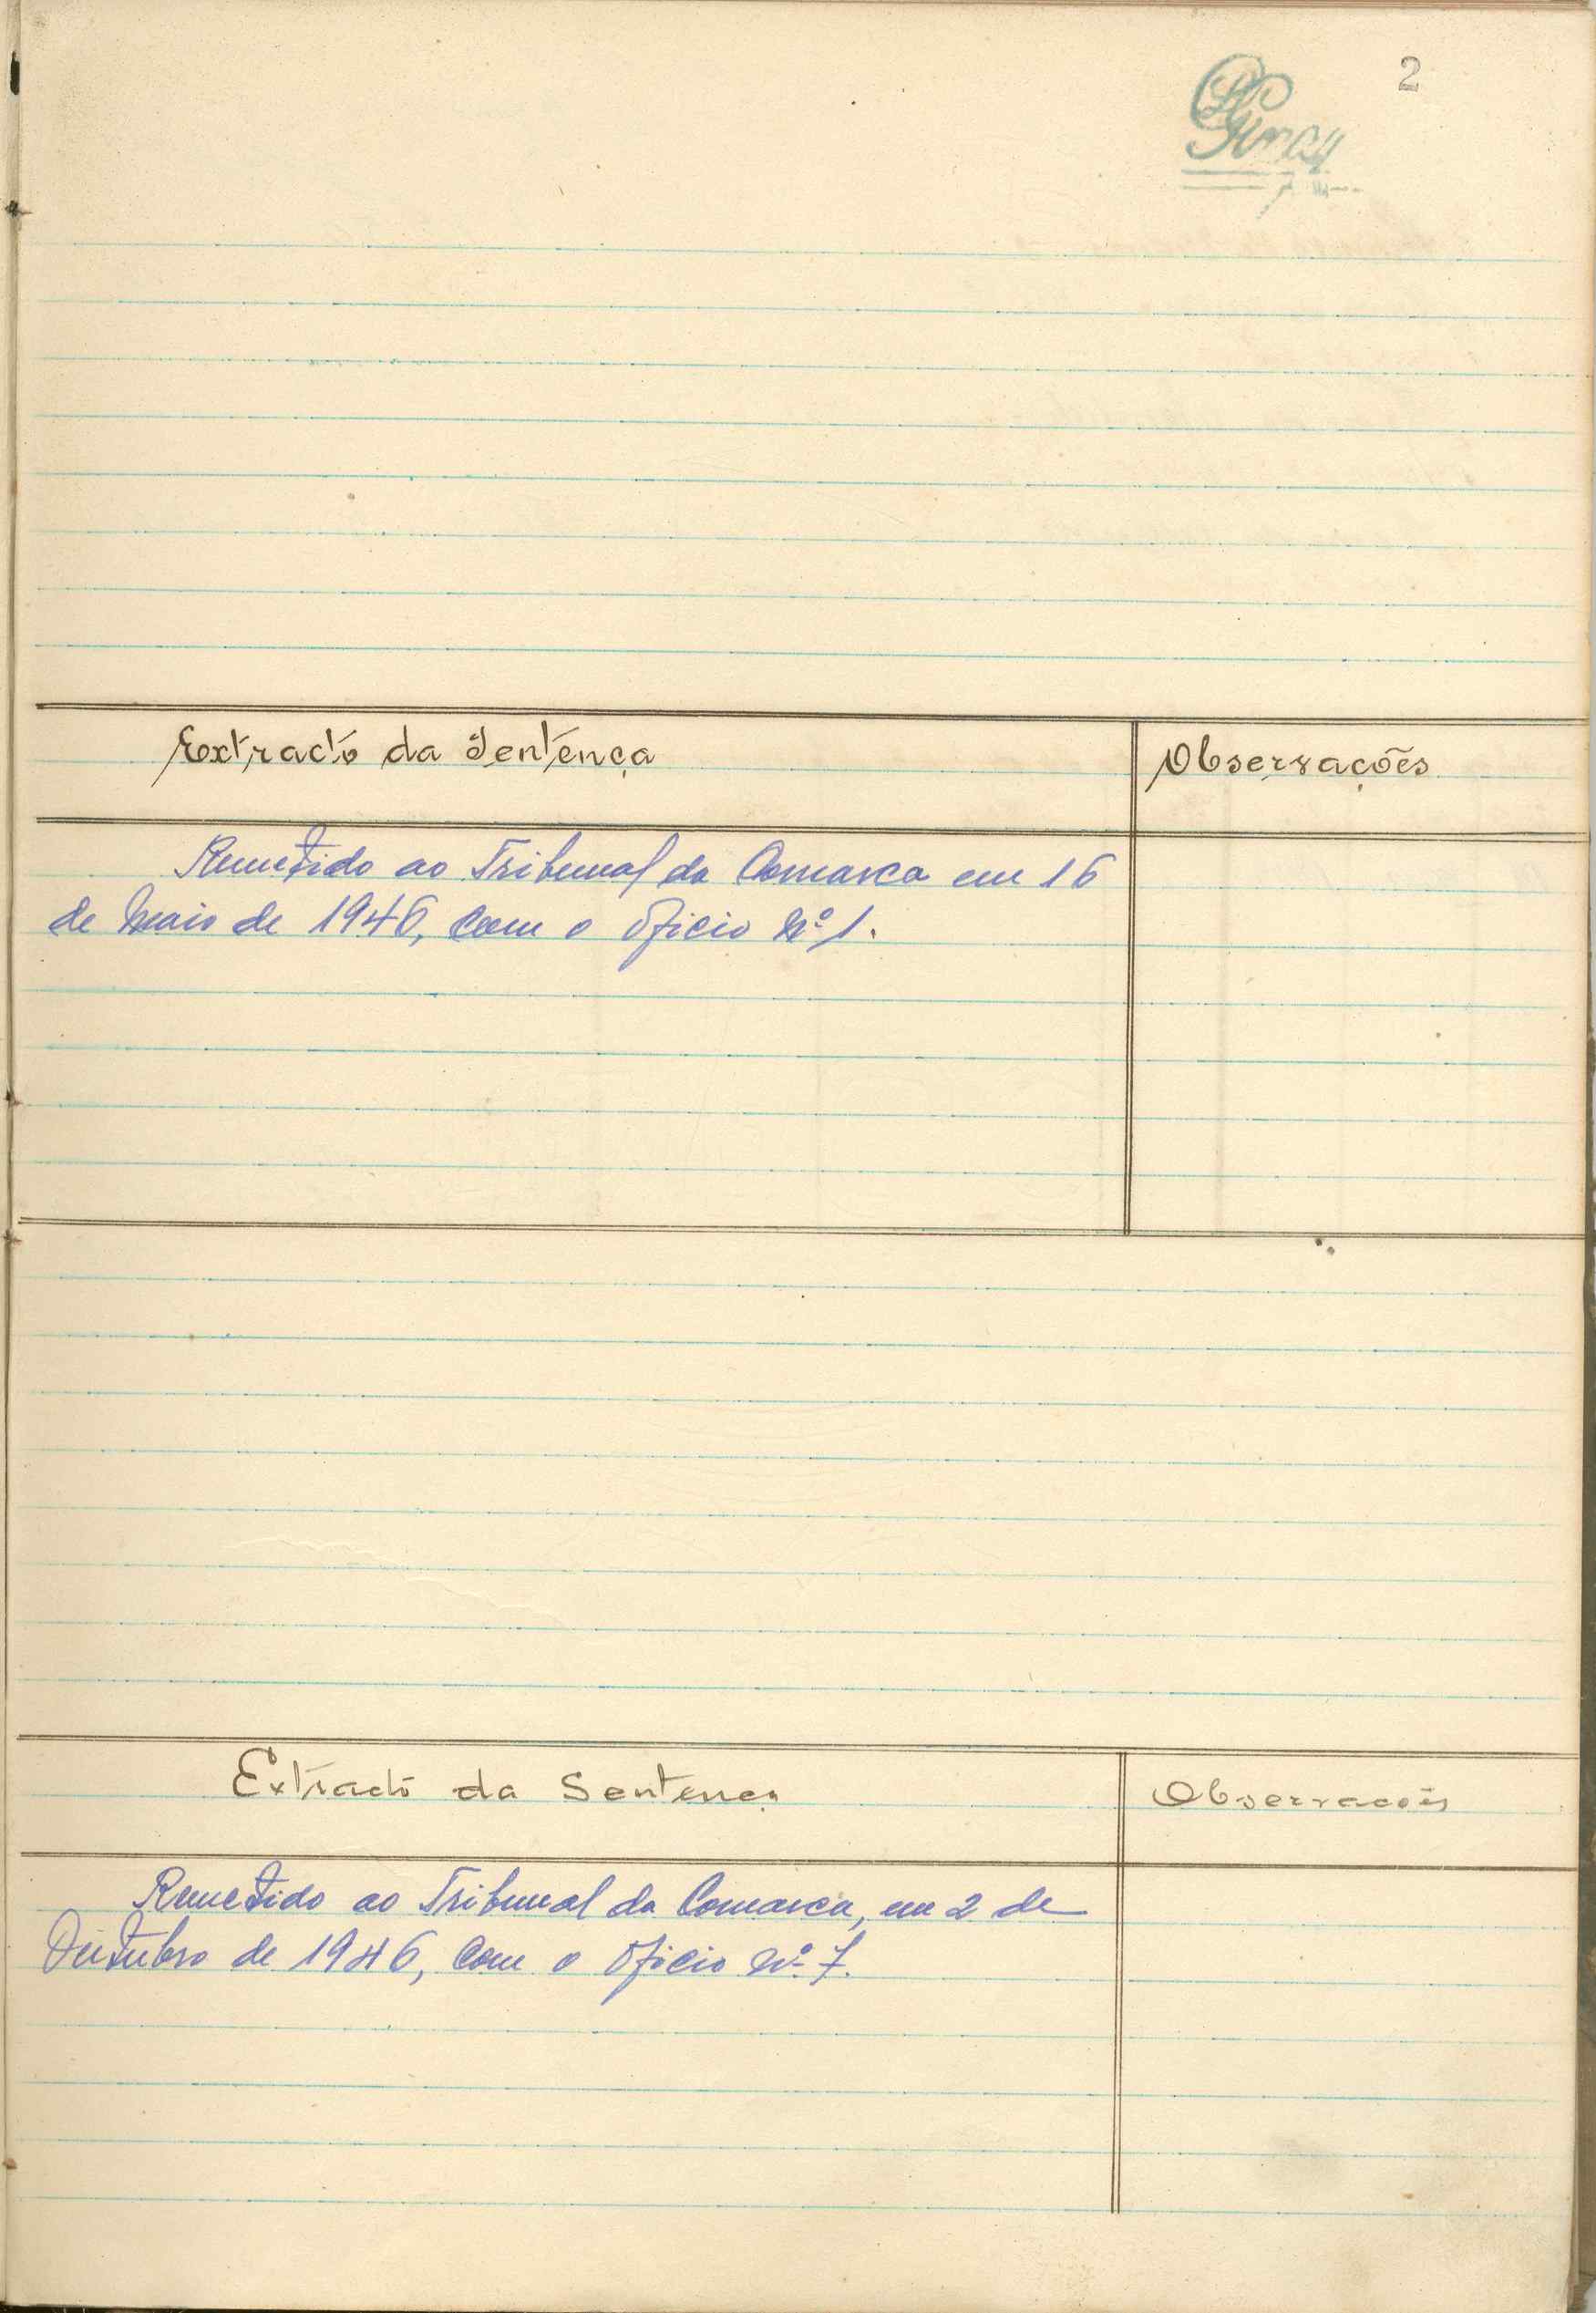 2
Extracto da Sentença
Observações
Remetido ao Tribunal da Comarca em 16
de Maio de 1946, com o oficio Nº 1.
Extracto da Sentença
Observações
Remetido ao Tribunal da Comarca, em 2 de
Outubro de 1946, com o oficio Nº 7.